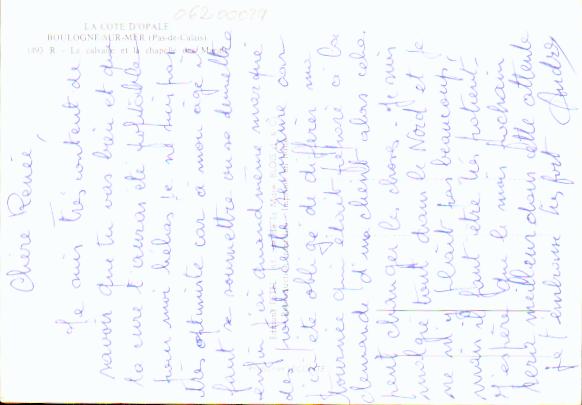 06200029
LA COTE D'OPALE
BOULOGNE-SUR-MER (Pas-de-Calais)
193 R - Le calvaire et la chapelle des Marins
Chère Renée,
Je suis très content de
savoir que tu vas bien et que
la cure t'auras été profitable
pour moi hélas je ne suis pas
très optimiste car à mon âge il
faut se soumettre ou se démettre
enfin j'ai quand même marqué
des points cette semaine car
j'ai été obligé de différer ma
tournée qui était à la
demande d'un client alors cela
peut changer les choses. Je suis
malgré tout dans le Nord et je
ne m'y plait pas beaucoup,
mais il faut être très patient.
J'espère que le mois prochain
sera meilleur dans cette attente
Je t'embrasse très fort
André